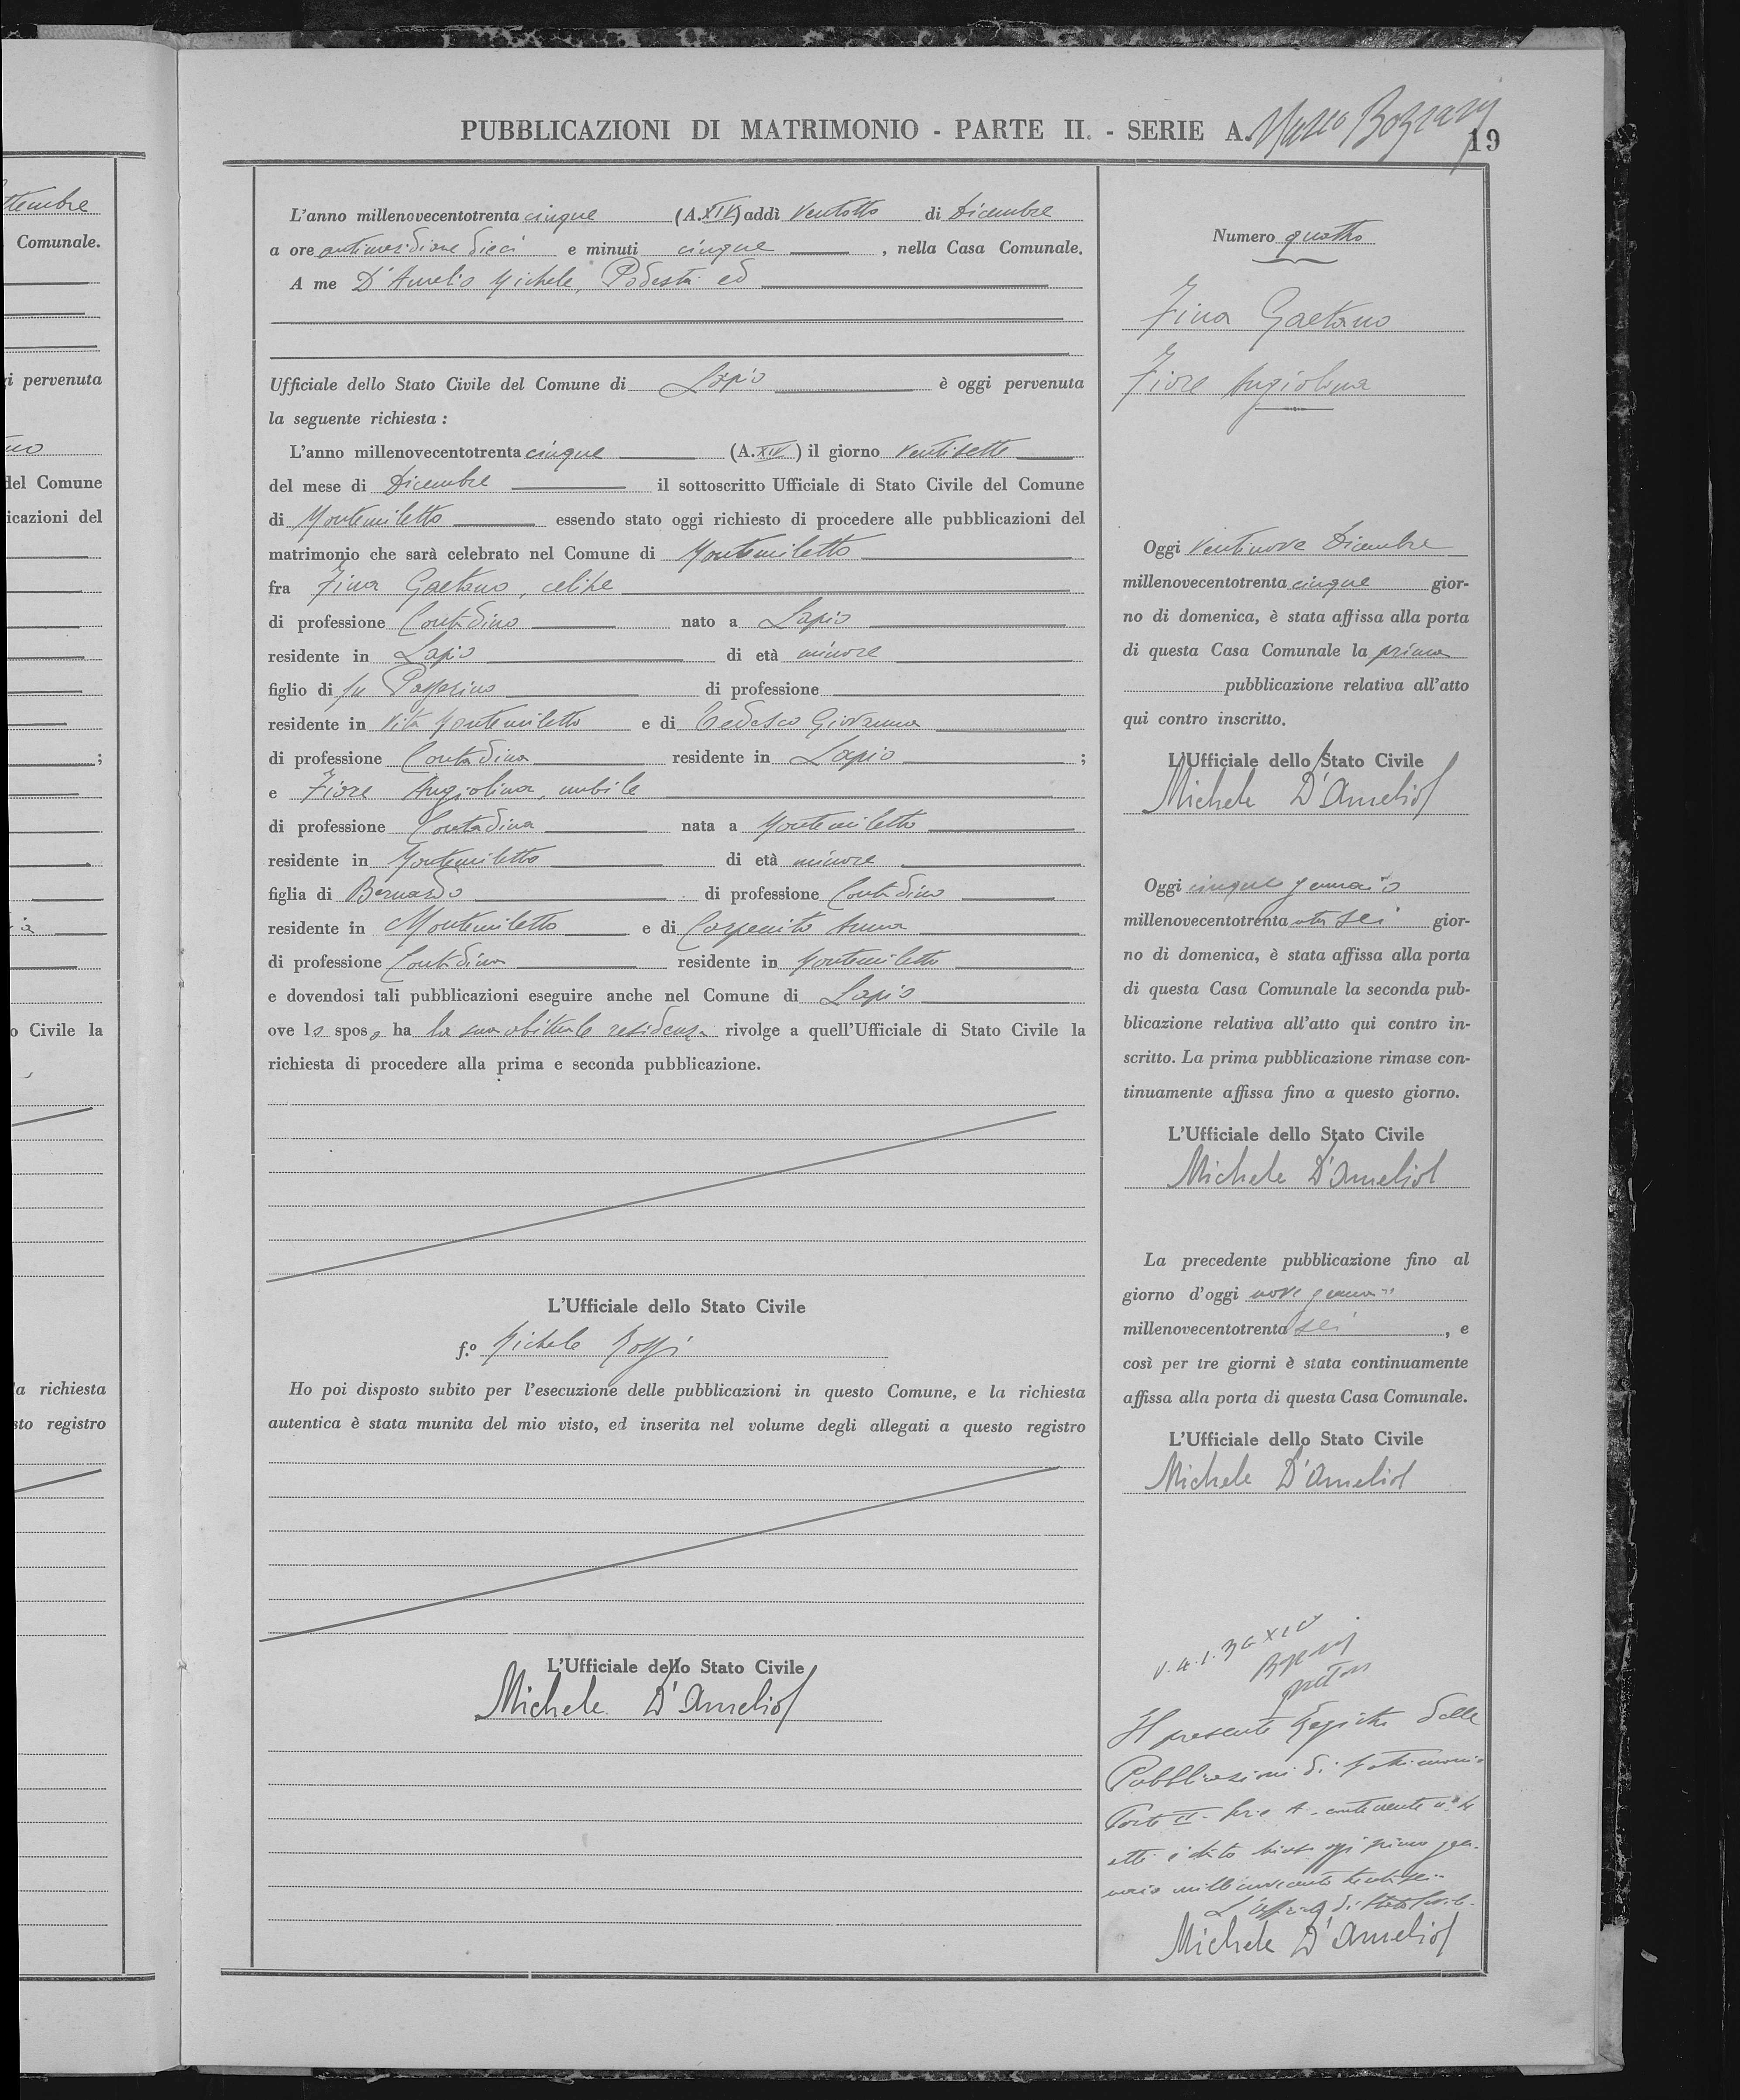 ttembre
Comunale.
i pervenuta
no
del Comune
icazioni del
;
o Civile la
a richiesta
sto registro
PUBBLICAZIONI DI MATRIMONIO - PARTE II. - SERIE A.
19
L'anno millenovecentotrenta cinque (A. XIV) addì ventotto di Dicembre
a ore antimeridiane dieci e minuti cinque , nella Casa Comunale.
A me D'Amelio Michele, Podestà ed
Ufficiale dello Stato Civile del Comune di Lapio è oggi pervenuta
la seguente richiesta :
L'anno millenovecentotrenta cinque (A. XIV) il giorno ventisette
del mese di Dicembre il sottoscritto Ufficiale di Stato Civile del Comune
di Montemiletto essendo stato oggi richiesto di procedere alle pubblicazioni del
matrimonio che sarà celebrato nel Comune di Montemiletto
fra Zina Gaetano, celibe
di professione Contadino nato a Lapio
residente in Lapio di età minore
figlio di fu di professione
residente in vita Montemiletto e di Tedesco Giovanna
di professione Contadina residente in Lapio ;
e Fiore Angiolina, nubile
di professione Contadina nata a Montemiletto
residente in Montemiletto di età minore
figlia di Bernardo di professione Contadino
residente in Montemiletto e di Carpenito Anna
di professione Contadina residente in Montemiletto
e dovendosi tali pubblicazioni eseguire anche nel Comune di Lapio
ove lo sposo ha la sua abituale residenza rivolge a quell'Ufficiale di Stato Civile la
richiesta di procedere alla prima e seconda pubblicazione.
L'Ufficiale dello Stato Civile
f.º Michele Rossi
Ho poi disposto subito per l'esecuzione delle pubblicazioni in questo Comune, e la richiesta
autentica è stata munita del mio visto, ed inserita nel volume degli allegati a questo registro
L'Ufficiale dello Stato Civile
Michele D'Amelio
Numero quattro
Zina Gaetano
Fiore Angiolina
Oggi ventinove Dicembre
millenovecentotrenta cinque gior-
no di domenica, è stata affissa alla porta
di questa Casa Comunale la prima
pubblicazione relativa all'atto
qui contro inscritto.
L'Ufficiale dello Stato Civile
Michele D'Amelio
Oggi cinque gennaio
millenovecentotrenta sei gior-
no di domenica, è stata affissa alla porta
di questa Casa Comunale la seconda pub-
blicazione relativa all'atto qui contro in-
scritto. La prima pubblicazione rimase con-
tinuamente affissa fino a questo giorno.
L'Ufficiale dello Stato Civile
Michele D'Amelio
La precedente pubblicazione fino al
giorno d'oggi nove gennaio
millenovecentotrenta sei , e
così per tre giorni è stata continuamente
affissa alla porta di questa Casa Comunale.
L'Ufficiale dello Stato Civile
Michele D'Amelio
V. 4.1.36 XIV
Il presente Registro delle
Pubblicazioni di Matrimonio
Parte II. Serie A. contenente n.º 4
atti è stato chiuso oggi primo gen-
naio millenovecentotrentasei.
L'Uffic. di Stato Civile
Michele D'Amelio